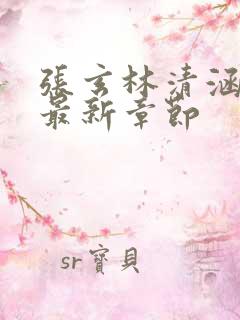 張玄林清涵
最新章節
sr寶貝